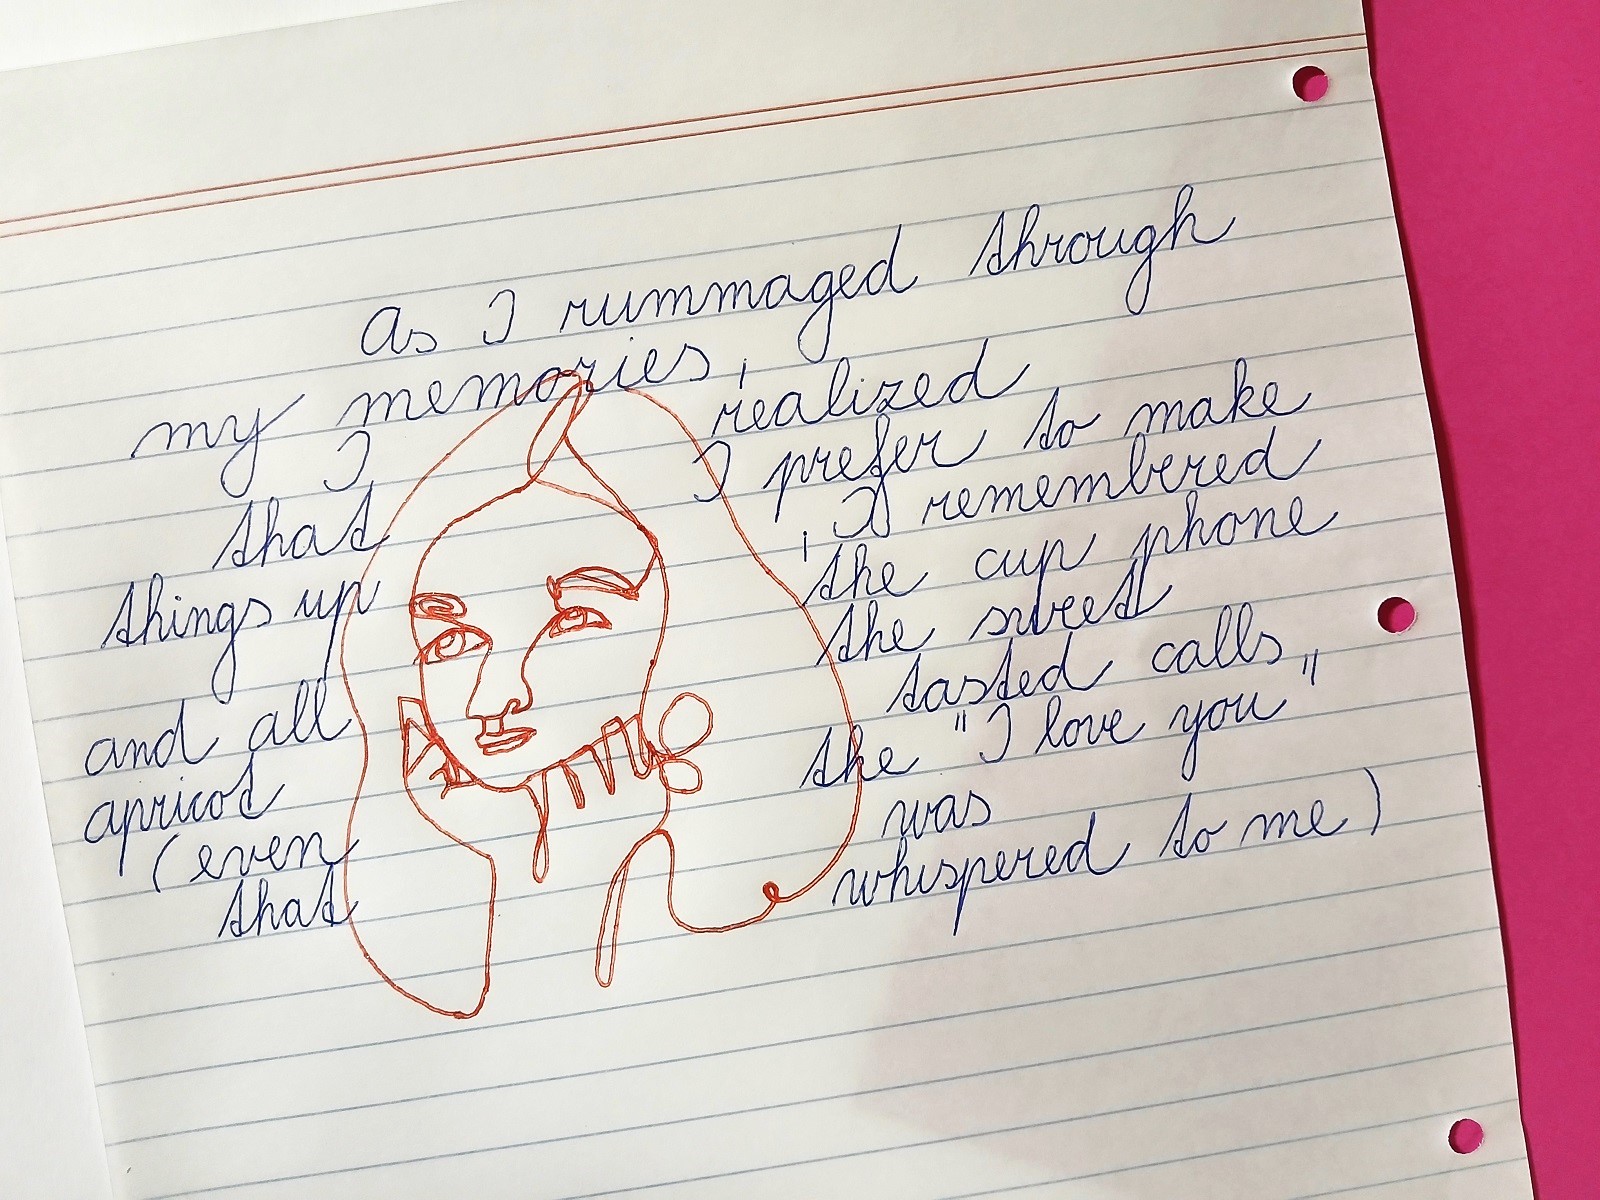 As I rummaged through
my memories,
I realized
that I prefer to make
things up, I remembered
the cup phone
and all the sweet
apricot tasted calls
(even the "I love you"
that was
whispered to me)